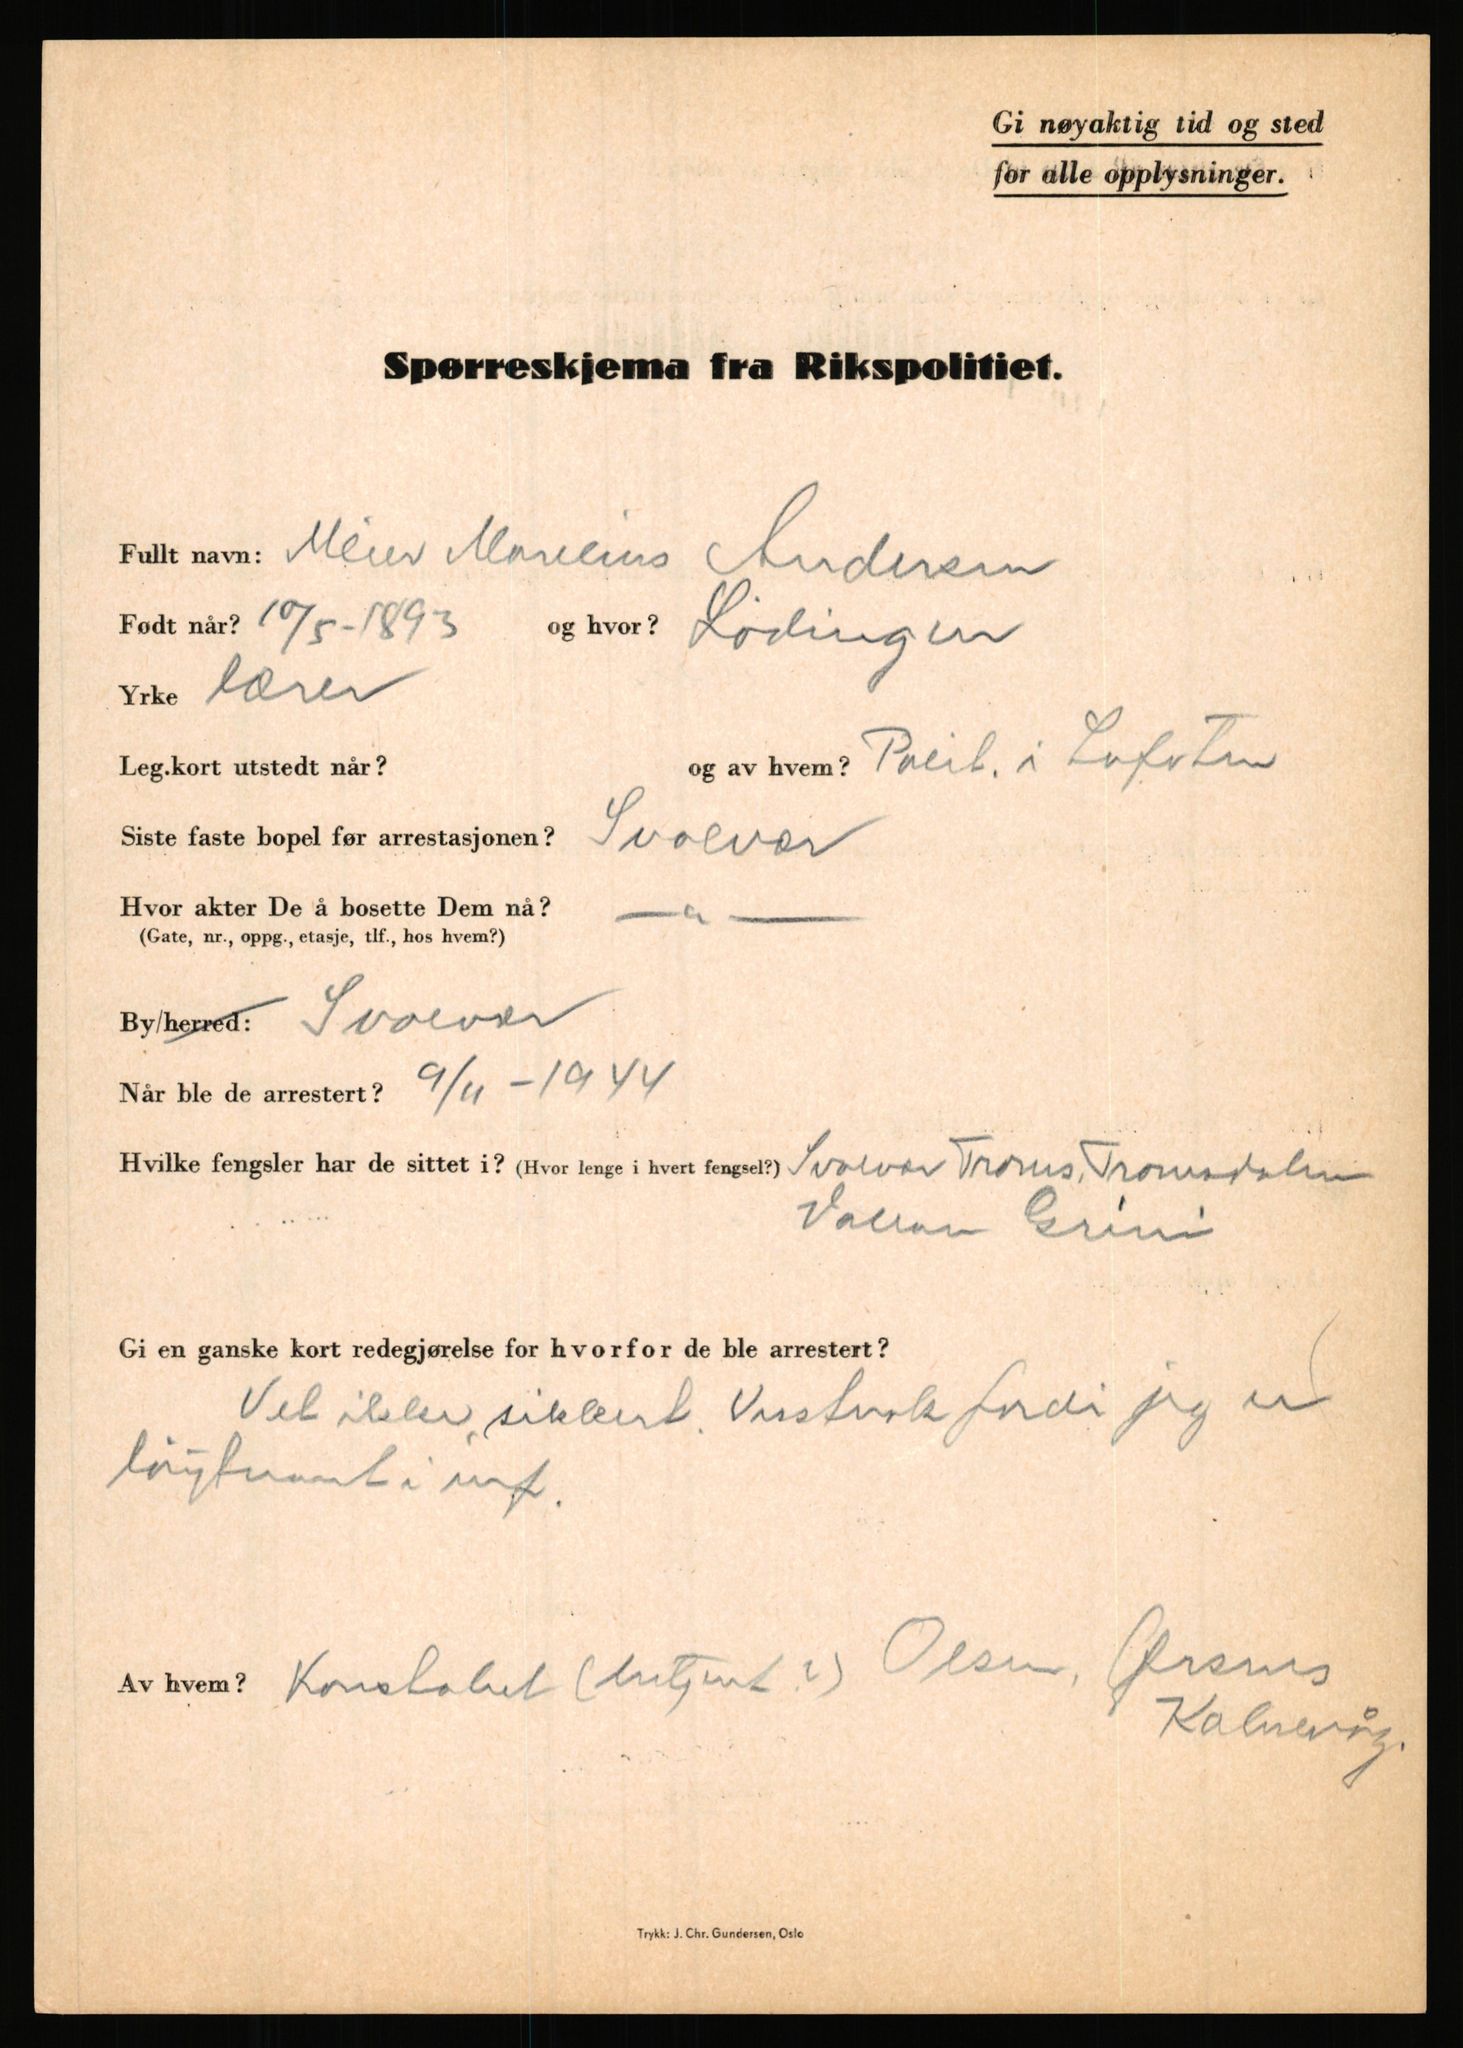 Gi nøyaktig tid og sted
for alle opplysninger.
Spørreskjema fra Rikspolitiet.
Fullt navn: Meier Marelius Andersen
Født når? 10/5-1893 og hvor? Lödingen
Yrke lærer
Leg.kort utstedt når? og av hvem? Polit. i Lofoten
Siste faste bopel før arrestasjonen? Svolvær
Hvor akter De å bosette Dem nå? — " —
(Gate, nr., oppg., etasje, tlf., hos hvem?)
By/herred: Svolvær
Når ble de arrestert? 9/11 - 1944
Hvilke fengsler har de sittet i? (Hvor lenge i hvert fengsel?) Svolvær Troms, Tromsdalen
Vollan Grini
Gi en ganske kort redegjørelse for hvorfor de ble arrestert?
Vet ikke sikkert. Visstnok fordi jeg er
löytnant i inf.
Av hvem? Konstabel (betjent ?) Olsen, Örsnes
Kalnevåg.
Trykk: J. Chr. Gundersen, Oslo